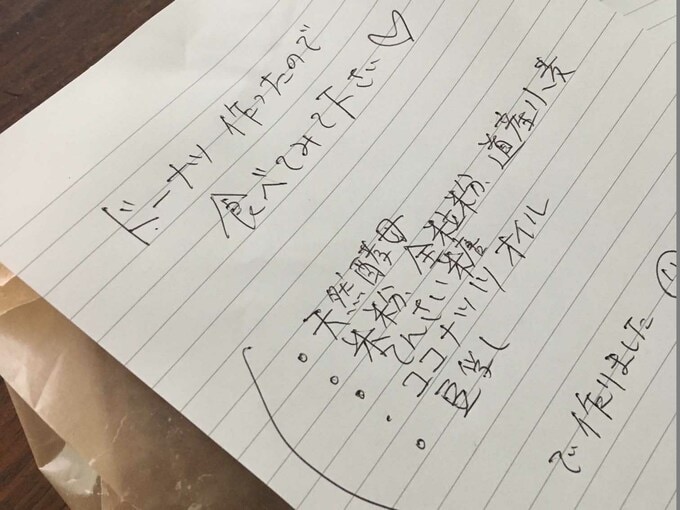 ドーナツ作ったので
食べてみて下さい♡
・天然酵母
・米粉、全粒粉、道産小麦
・てんさい糖
・ココナッツオイル
・豆乳
で作りました